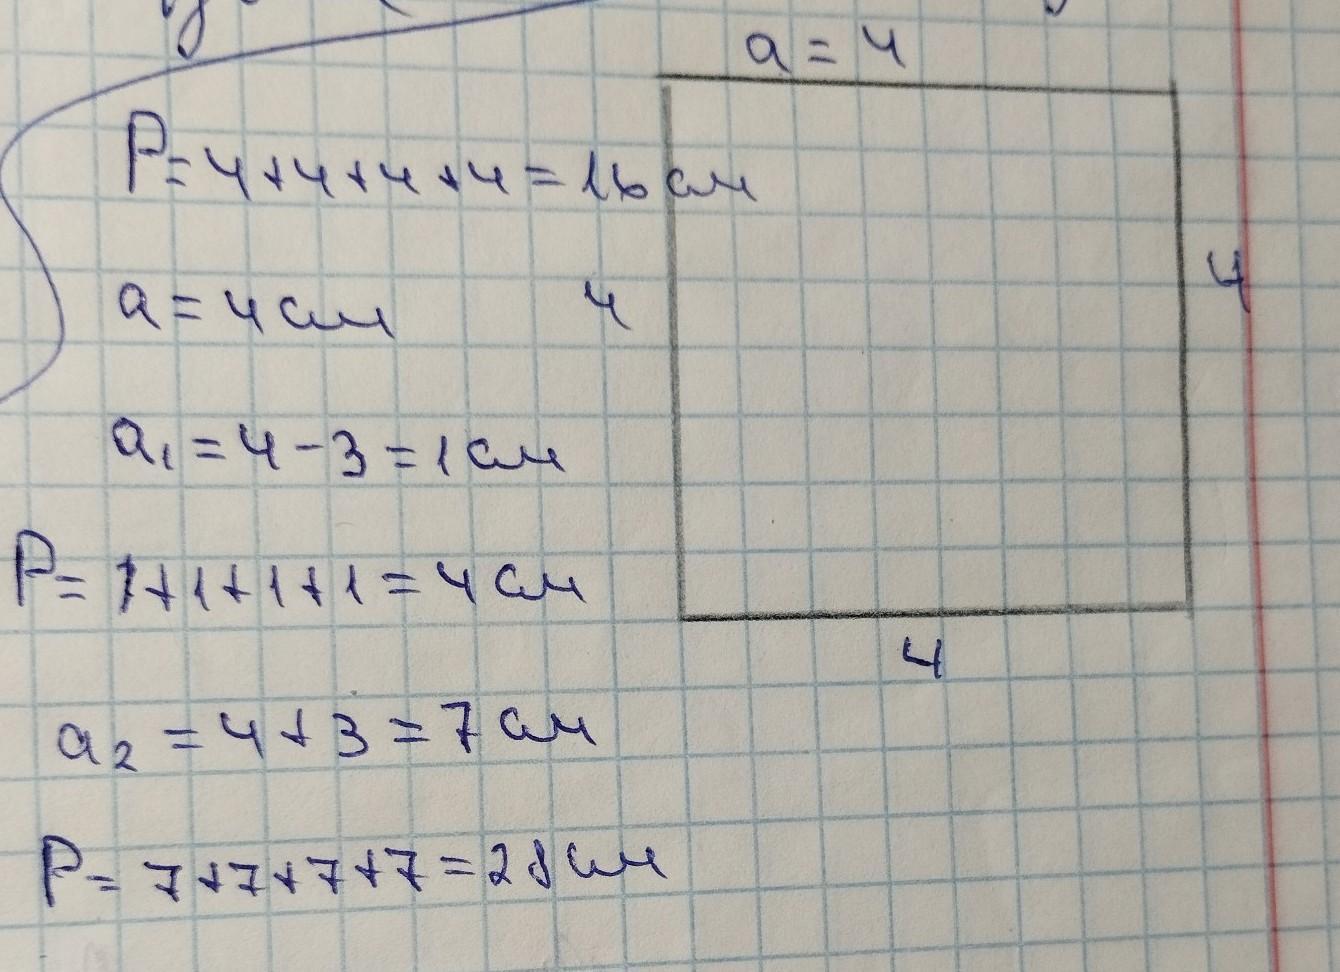 a = 4
P = 4 + 4 + 4 + 4 = 16 см
4
a = 4 см
4
a₁ = 4 - 3 = 1 см
P = 1 + 1 + 1 + 1 = 4 см
4
a₂ = 4 + 3 = 7 см
P = 7 + 7 + 7 + 7 = 28 см